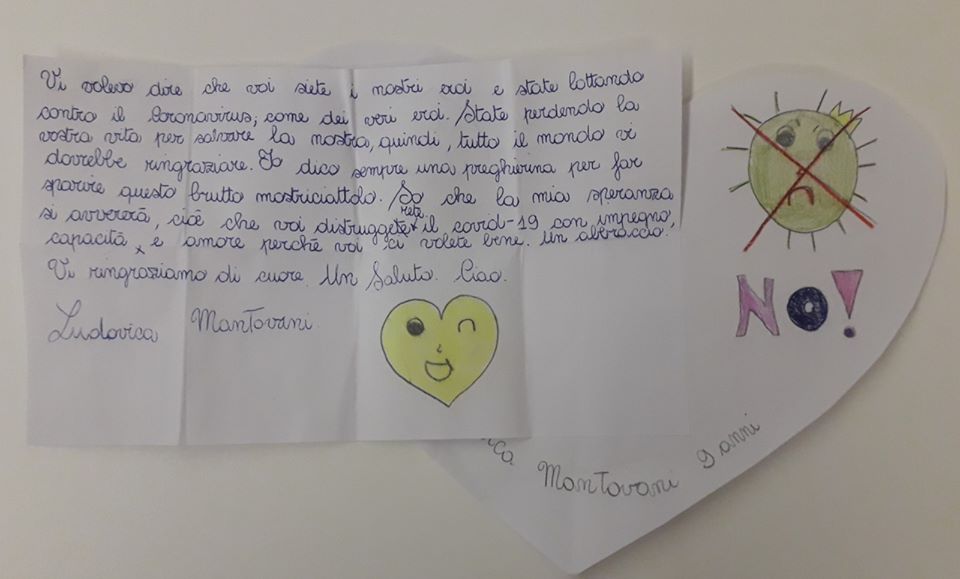 Vi volevo dire che voi siete i nostri eroi e state lottando
contro il Coronavirus, come dei veri eroi. State perdendo la
vostra vita per salvare la nostra, quindi, tutto il mondo vi
dovrebbe ringraziare. Io dico sempre una preghierina per far
sparire questo brutto mostriciattolo. So che la mia speranza
si avvererà, cioè che voi distruggete il covid-19 con impegno,
rete
capacità e amore perché voi ci volete bene. Un abbraccio,
Vi ringraziamo di cuore. Un Saluto. Ciao.
Ludovica Mantovani.
NO!
ica Mantovani 9 anni